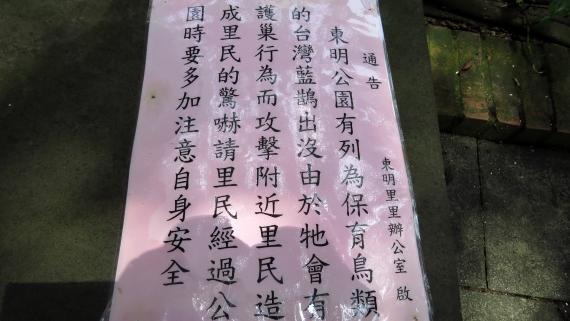 通告
東明公園有列為保育鳥類
的台灣藍鵲出沒由於牠會有
護巢行為而攻擊附近里民造
成里民的驚嚇請里民經過公
園時要多加注意自身安全
東明里里辦公室 啟